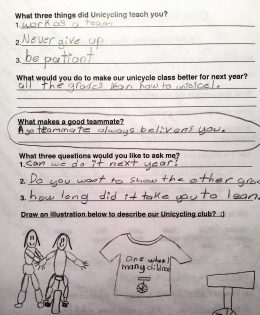 What three things did Unicycling teach you?
1. work as a team
2. Never give up
3. be pationt
What would you do to make our unicycle class better for next year?
all the grades lean how to unicicel.
What makes a good teammate?
A teammate always belivens you.
What three questions would you like to ask me?
1. can we do it next year!
2. Do you want to show the other gra
3. how long did it take you to lean
Draw an illustration below to describe our Unicycling club? :)
One wheel
many children